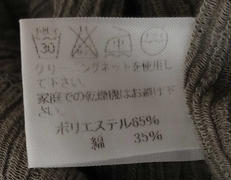 30
クリーニングネットを使用し
て下さい。
家庭での乾燥機はお避け下
さい。
ポリエステル65%
綿 35%